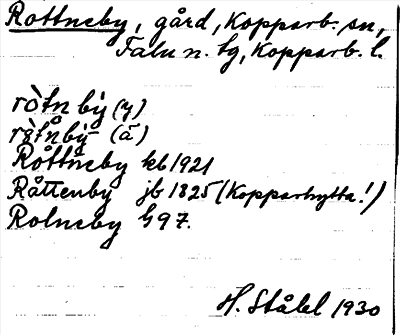 Rottneby, gård, Kopparb. sn,
Falu n. tg, Kopparb. l.
ròtn bẏ (y)
(ä)
Råttneby kb 1921
Råttenby jb 1825 (Kopparhytta!)
Rolneby G 97.
H. Ståhl 1930